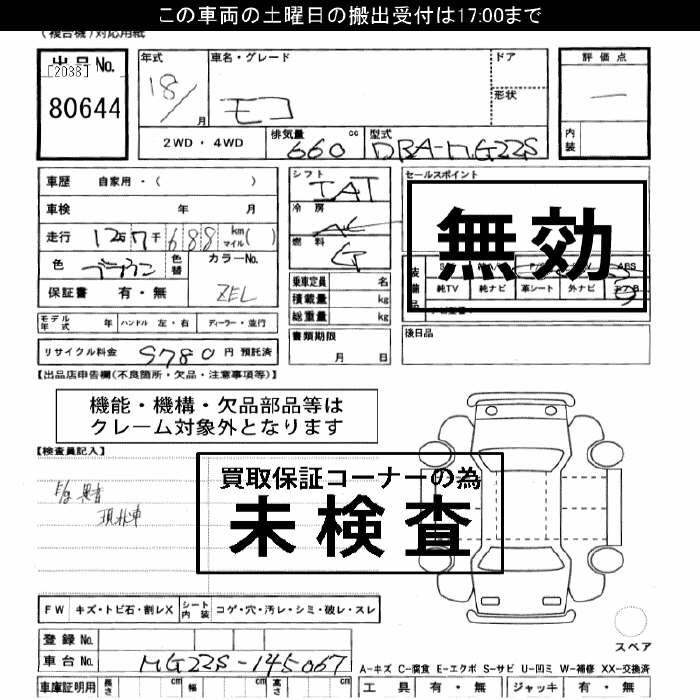 この車両の土曜日の搬出受付は17:00まで
(複合機)対応用紙
出品No.
[2038]
80644
年式
18/
月
車名・グレード
モコ
ドア
形状
評価点
内装
2WD・4WD
排気量
660 cc
型式
DBA-MG22S
車歴 自家用・( )
車検 年 月
走行 12万7千688 km マイル( )
色 ブラウン 色替 カラーNo.
保証書 有・無 ZEL
シフト
IAT
冷房
AC
燃料
G
乗車定員 名
積載量 kg
総重量 kg
セールスポイント
無効
装備品
ABS
純TV 純ナビ 革シート 外ナビ エアB
モデル年式 年 ハンドル 左・右 ディーラー・並行
書類期限
月 日
後日品
リサイクル料金 9780 円 預託済
【出品店申告欄(不良箇所・欠品・注意事項等)】
機能・機構・欠品部品等は
クレーム対象外となります
【検査員記入】
買取保証コーナーの為
未検査
異音
現状車
FW キズ・トビ石・割レX シート内装 コゲ・穴・汚レ・シミ・破レ・スレ
スペア
登録No.
車台No. MG22S-145067
A-キズ C-腐食 E-エクボ S-サビ U-凹ミ W-補修 XX-交換済
車庫証明用 長さ cm 幅 cm 高さ cm
工具 有・無 ジャッキ 有・無